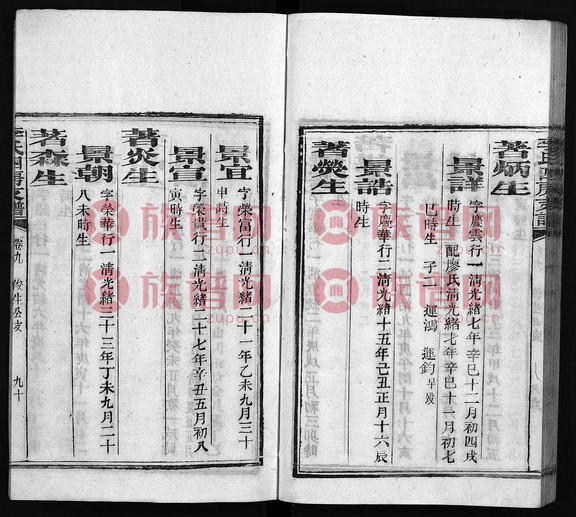 著炳生
景詳 字慶雲行一清光緒七年辛巳十二月初四戌
時生 配廖氏清光緒七年辛巳十一月初七
巳時生 子二 運鴻 運鈞早歿
景誥 字慶華行二清光緒十五年己丑正月十六辰
時生
著熒生
景宜 字榮富行一清光緒二十一年乙未九月三十
申時生
景宣 字榮貴行二清光緒二十七年辛丑五月初八
寅時生
著炎生
景朝 字榮華行一清光緒三十三年丁未九月二十
八未時生
著森生
李氏四房支譜 卷九 俊生公支 九十
族谱网